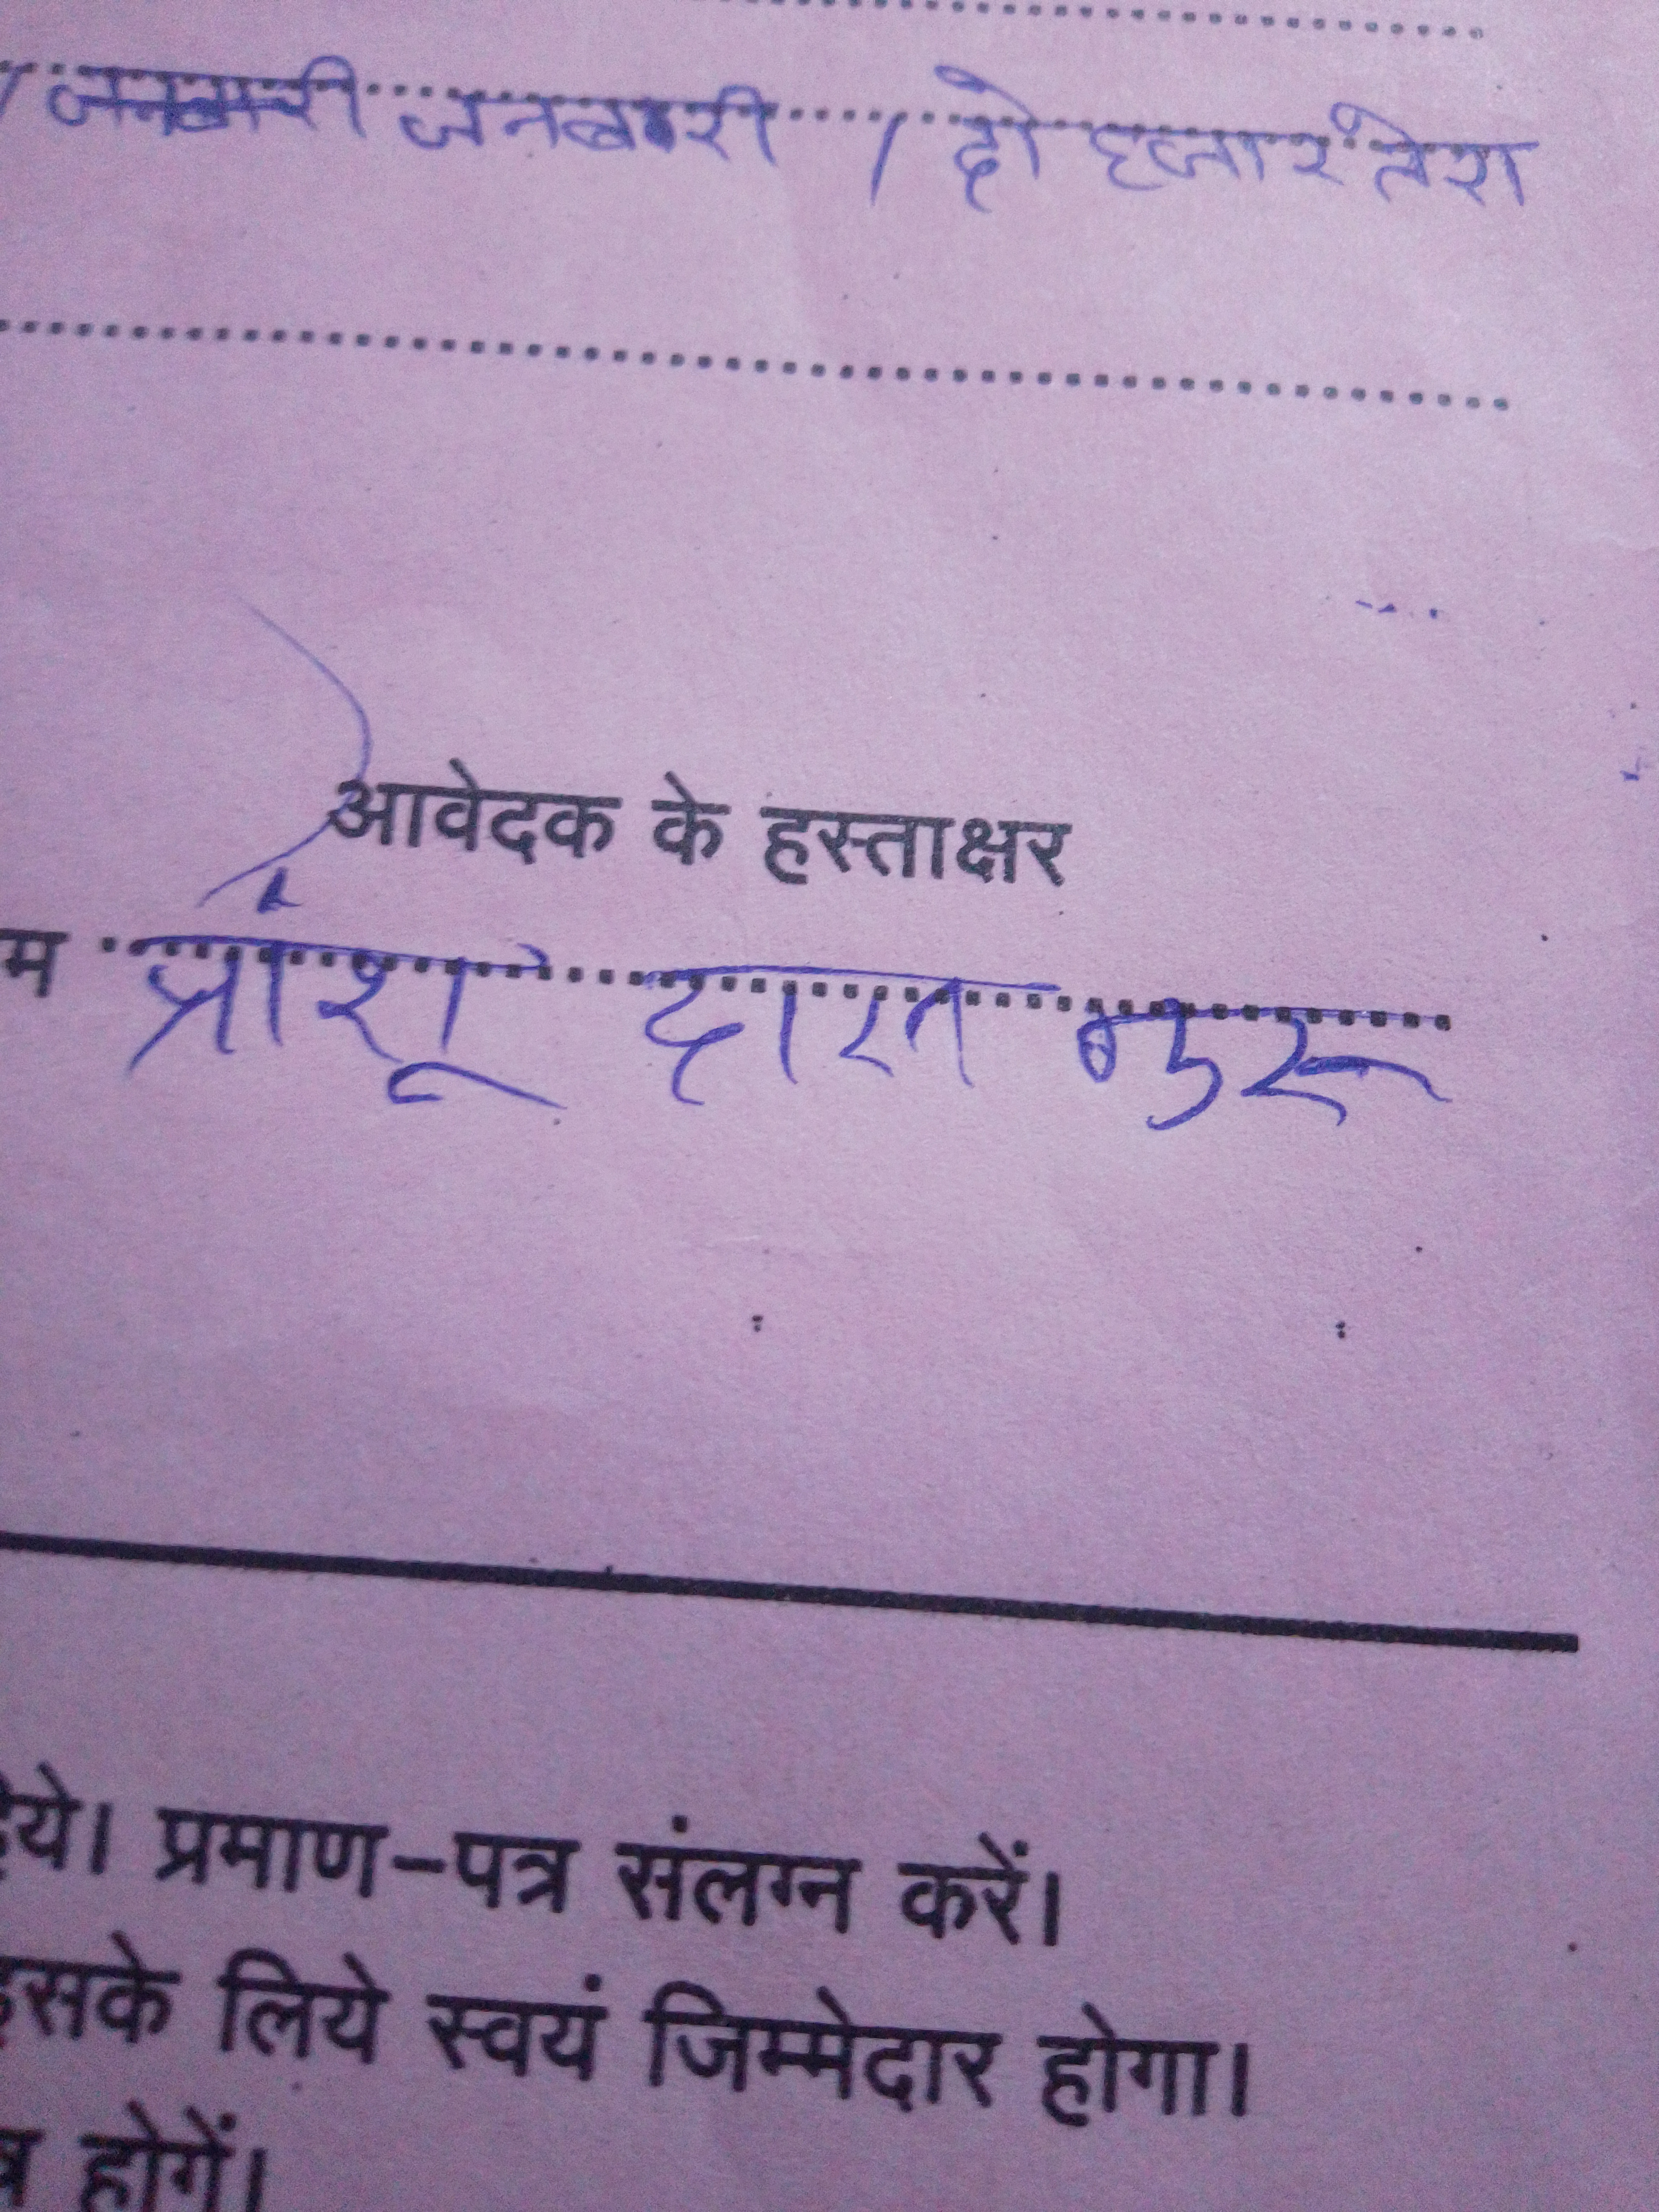 / जनवरी जनबरी / दो हजार तेरा
आवेदक के हस्ताक्षर
म प्रांशू दास गुरू
प्रमाण-पत्र संलग्न करें।
इसके लिये स्वयं जिम्मेदार होगा।
होगें।